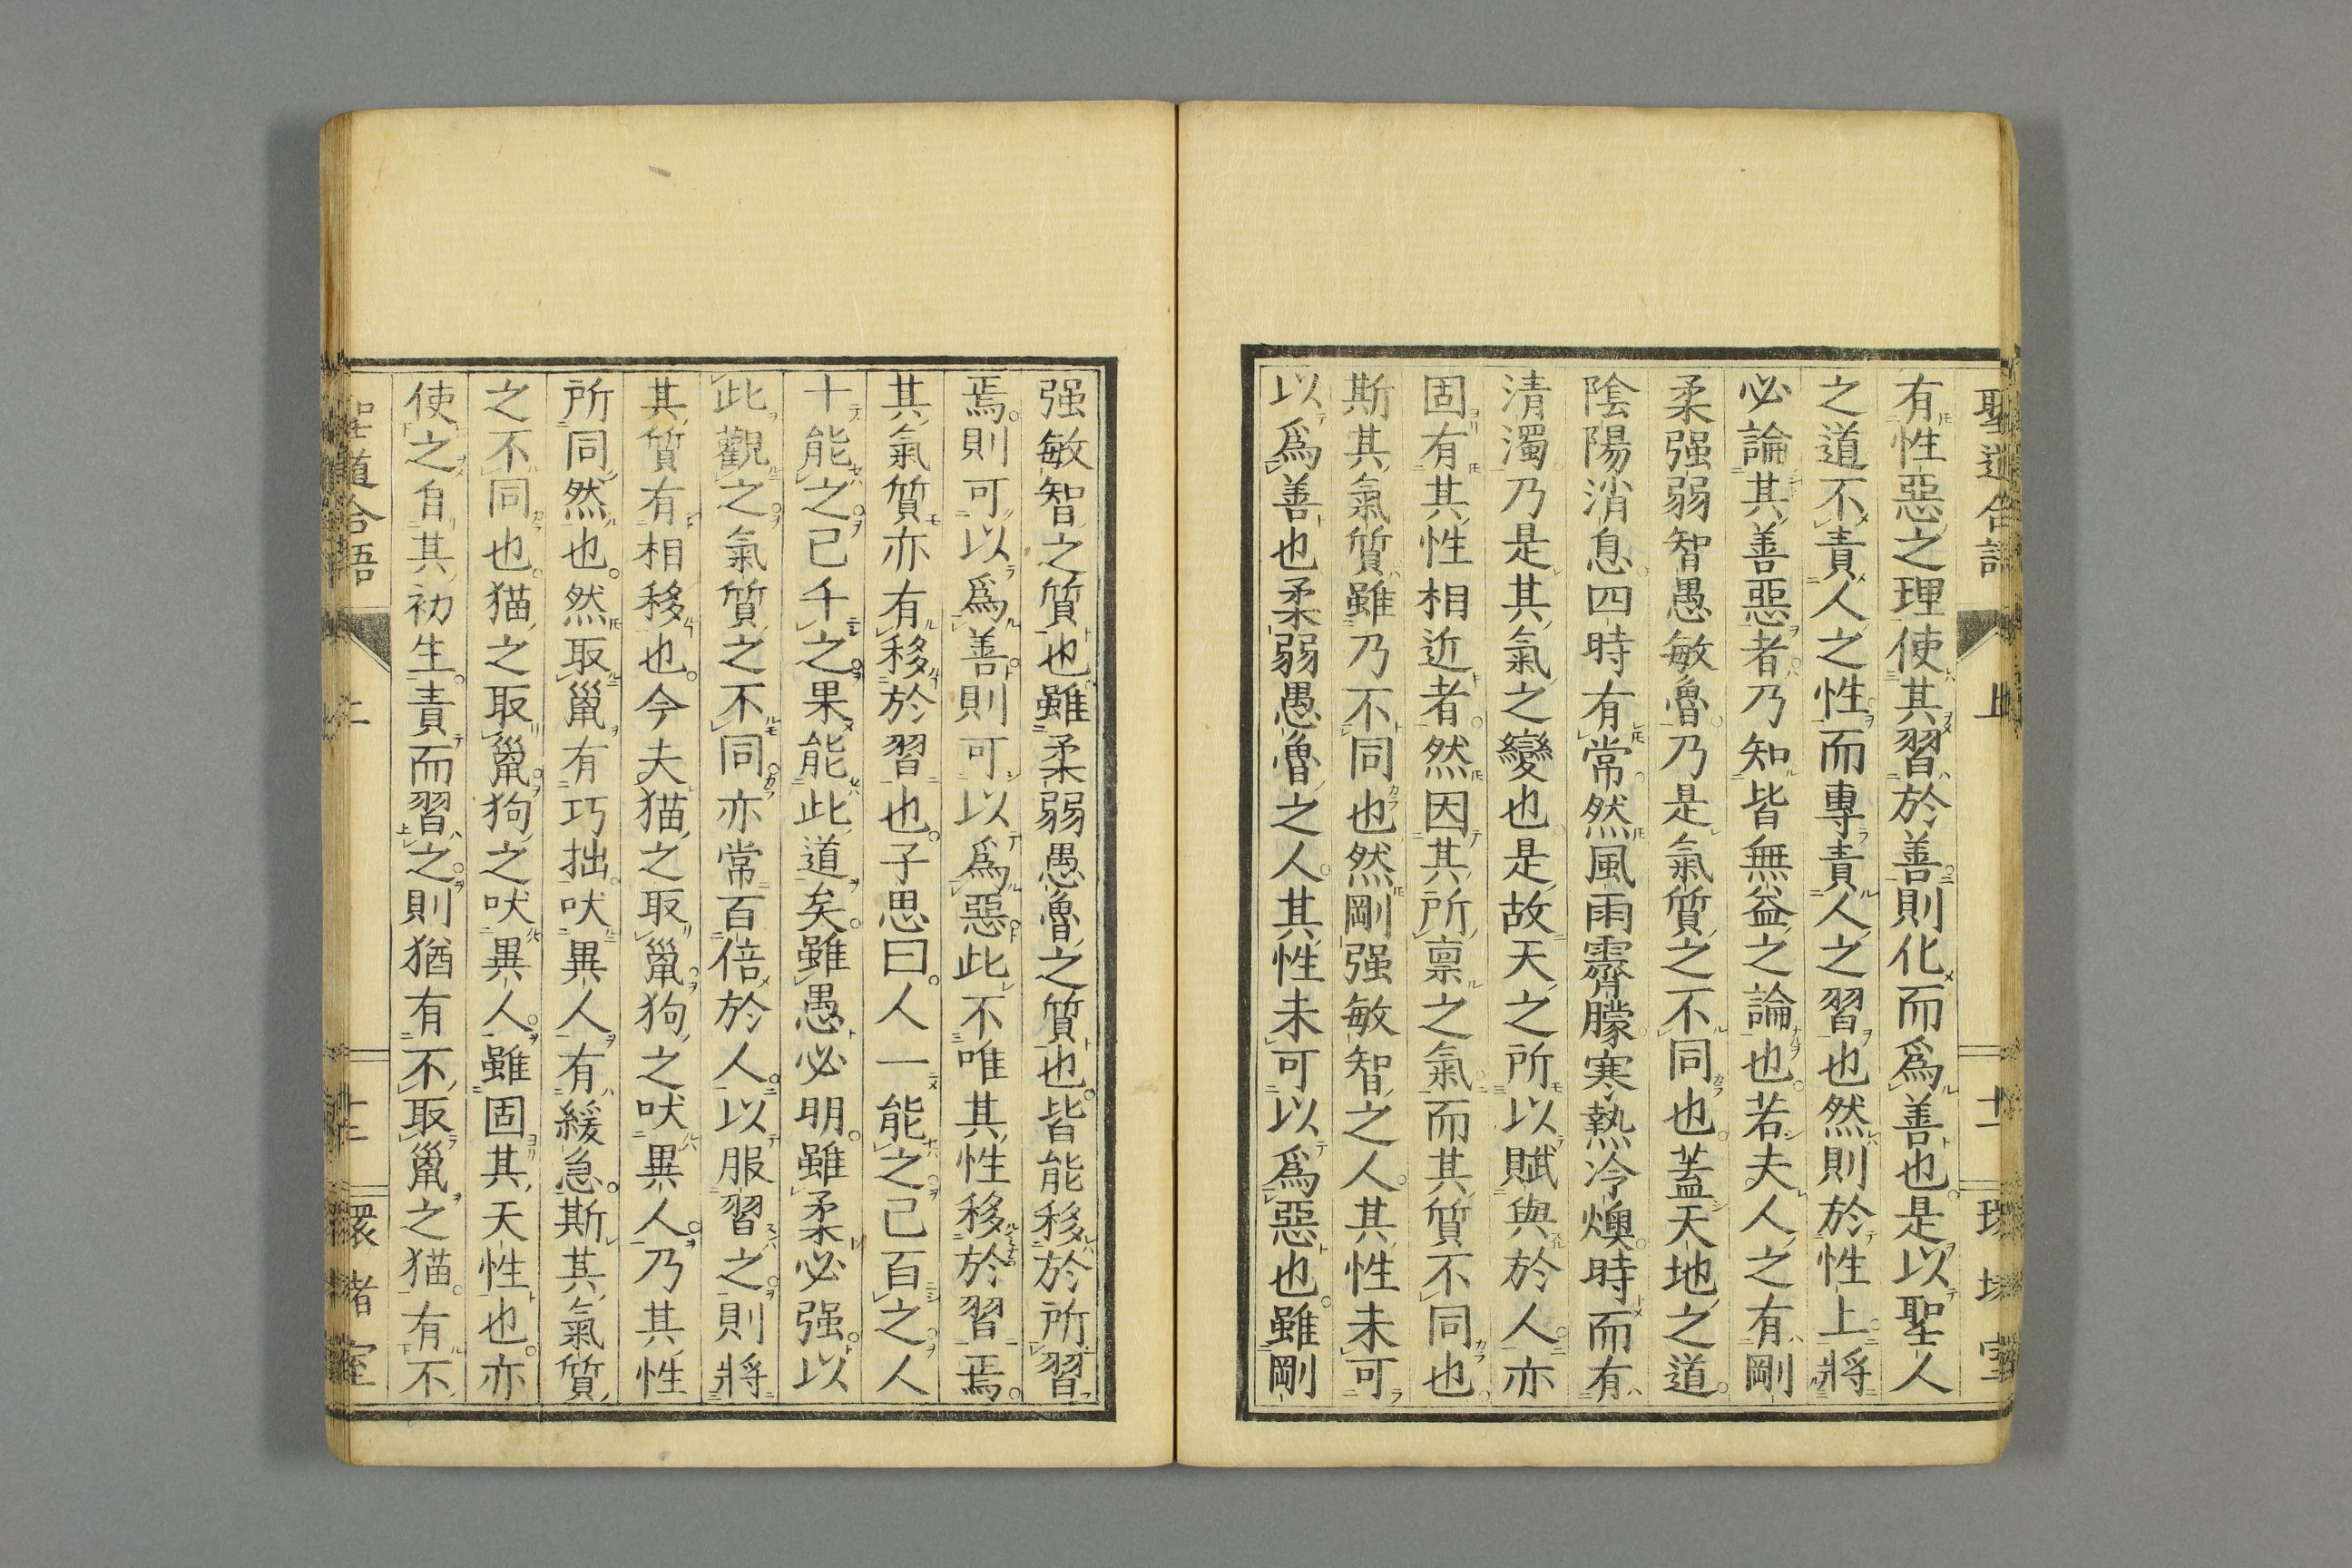 聖道合語 上
有性惡之理使其習於善則化而爲善也是以聖人
之道不責人之性而專責人之習也然則於性上將
必論其善惡者乃知皆無益之論也若夫人之有剛
柔强弱智愚敏魯乃是氣質之不同也蓋天地之道
陰陽消息四時有常然風雨霽朦寒熱冷燠時而有
清濁乃是其氣之變也是故天之所以賦與於人亦
固有其性相近者然因其所禀之氣而其質不同也
斯其氣質雖乃不同也然剛强敏智之人其性未可
以爲善也柔弱愚魯之人其性未可以爲惡也雖剛
强敏智之質也雖柔弱愚魯之質也皆能移於所習
焉則可以爲善則可以爲惡此不唯其性移於習焉
其氣質亦有移於習也子思曰人一能之己百之人
十能之己千之果能此道矣雖愚必明雖柔必强以
此觀之氣質之不同亦常百倍於人以服習之則將
其質有相移也今夫猫之取鼠狗之吠異人乃其性
所同然也然取鼠有巧拙吠異人有緩急斯其氣質
之不同也猫之取鼠狗之吠異人雖固其天性也亦
使之自其初生責而習之則猶有不取鼠之猫有不
道合語